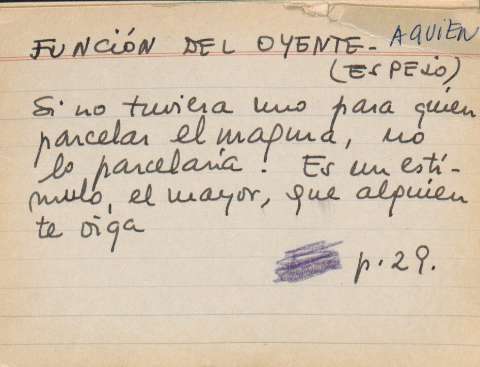 FUNCIÓN DEL OYENTE- AQUIEN
(ESPEJO)
Si no tuviera uno para quién
parcelar el magma, no
lo parcelaría. Es un estí-
mulo, el mayor, que alguien
te oiga
p. 29.